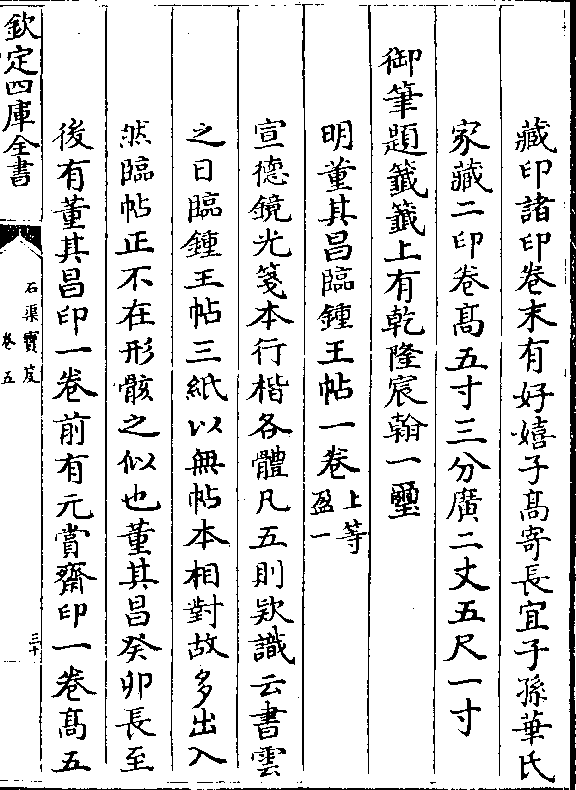 藏印諸印卷末有好嬉子髙寄長宜子孫華氏
家藏二印卷髙五寸三分廣二丈五尺一寸
御筆題籤籤上有乾隆宸翰一璽
明董其昌臨鍾王帖一卷上等盈一
宣德鏡光箋本行楷各體凡五則欵識云書雲
之日臨鍾王帖三紙以無帖本相對故多出入
然臨帖正不在形骸之似也董其昌癸卯長至
後有董其昌印一卷前有元賞齋印一卷髙五
欽定四庫全書
石渠寶笈
卷五
三十